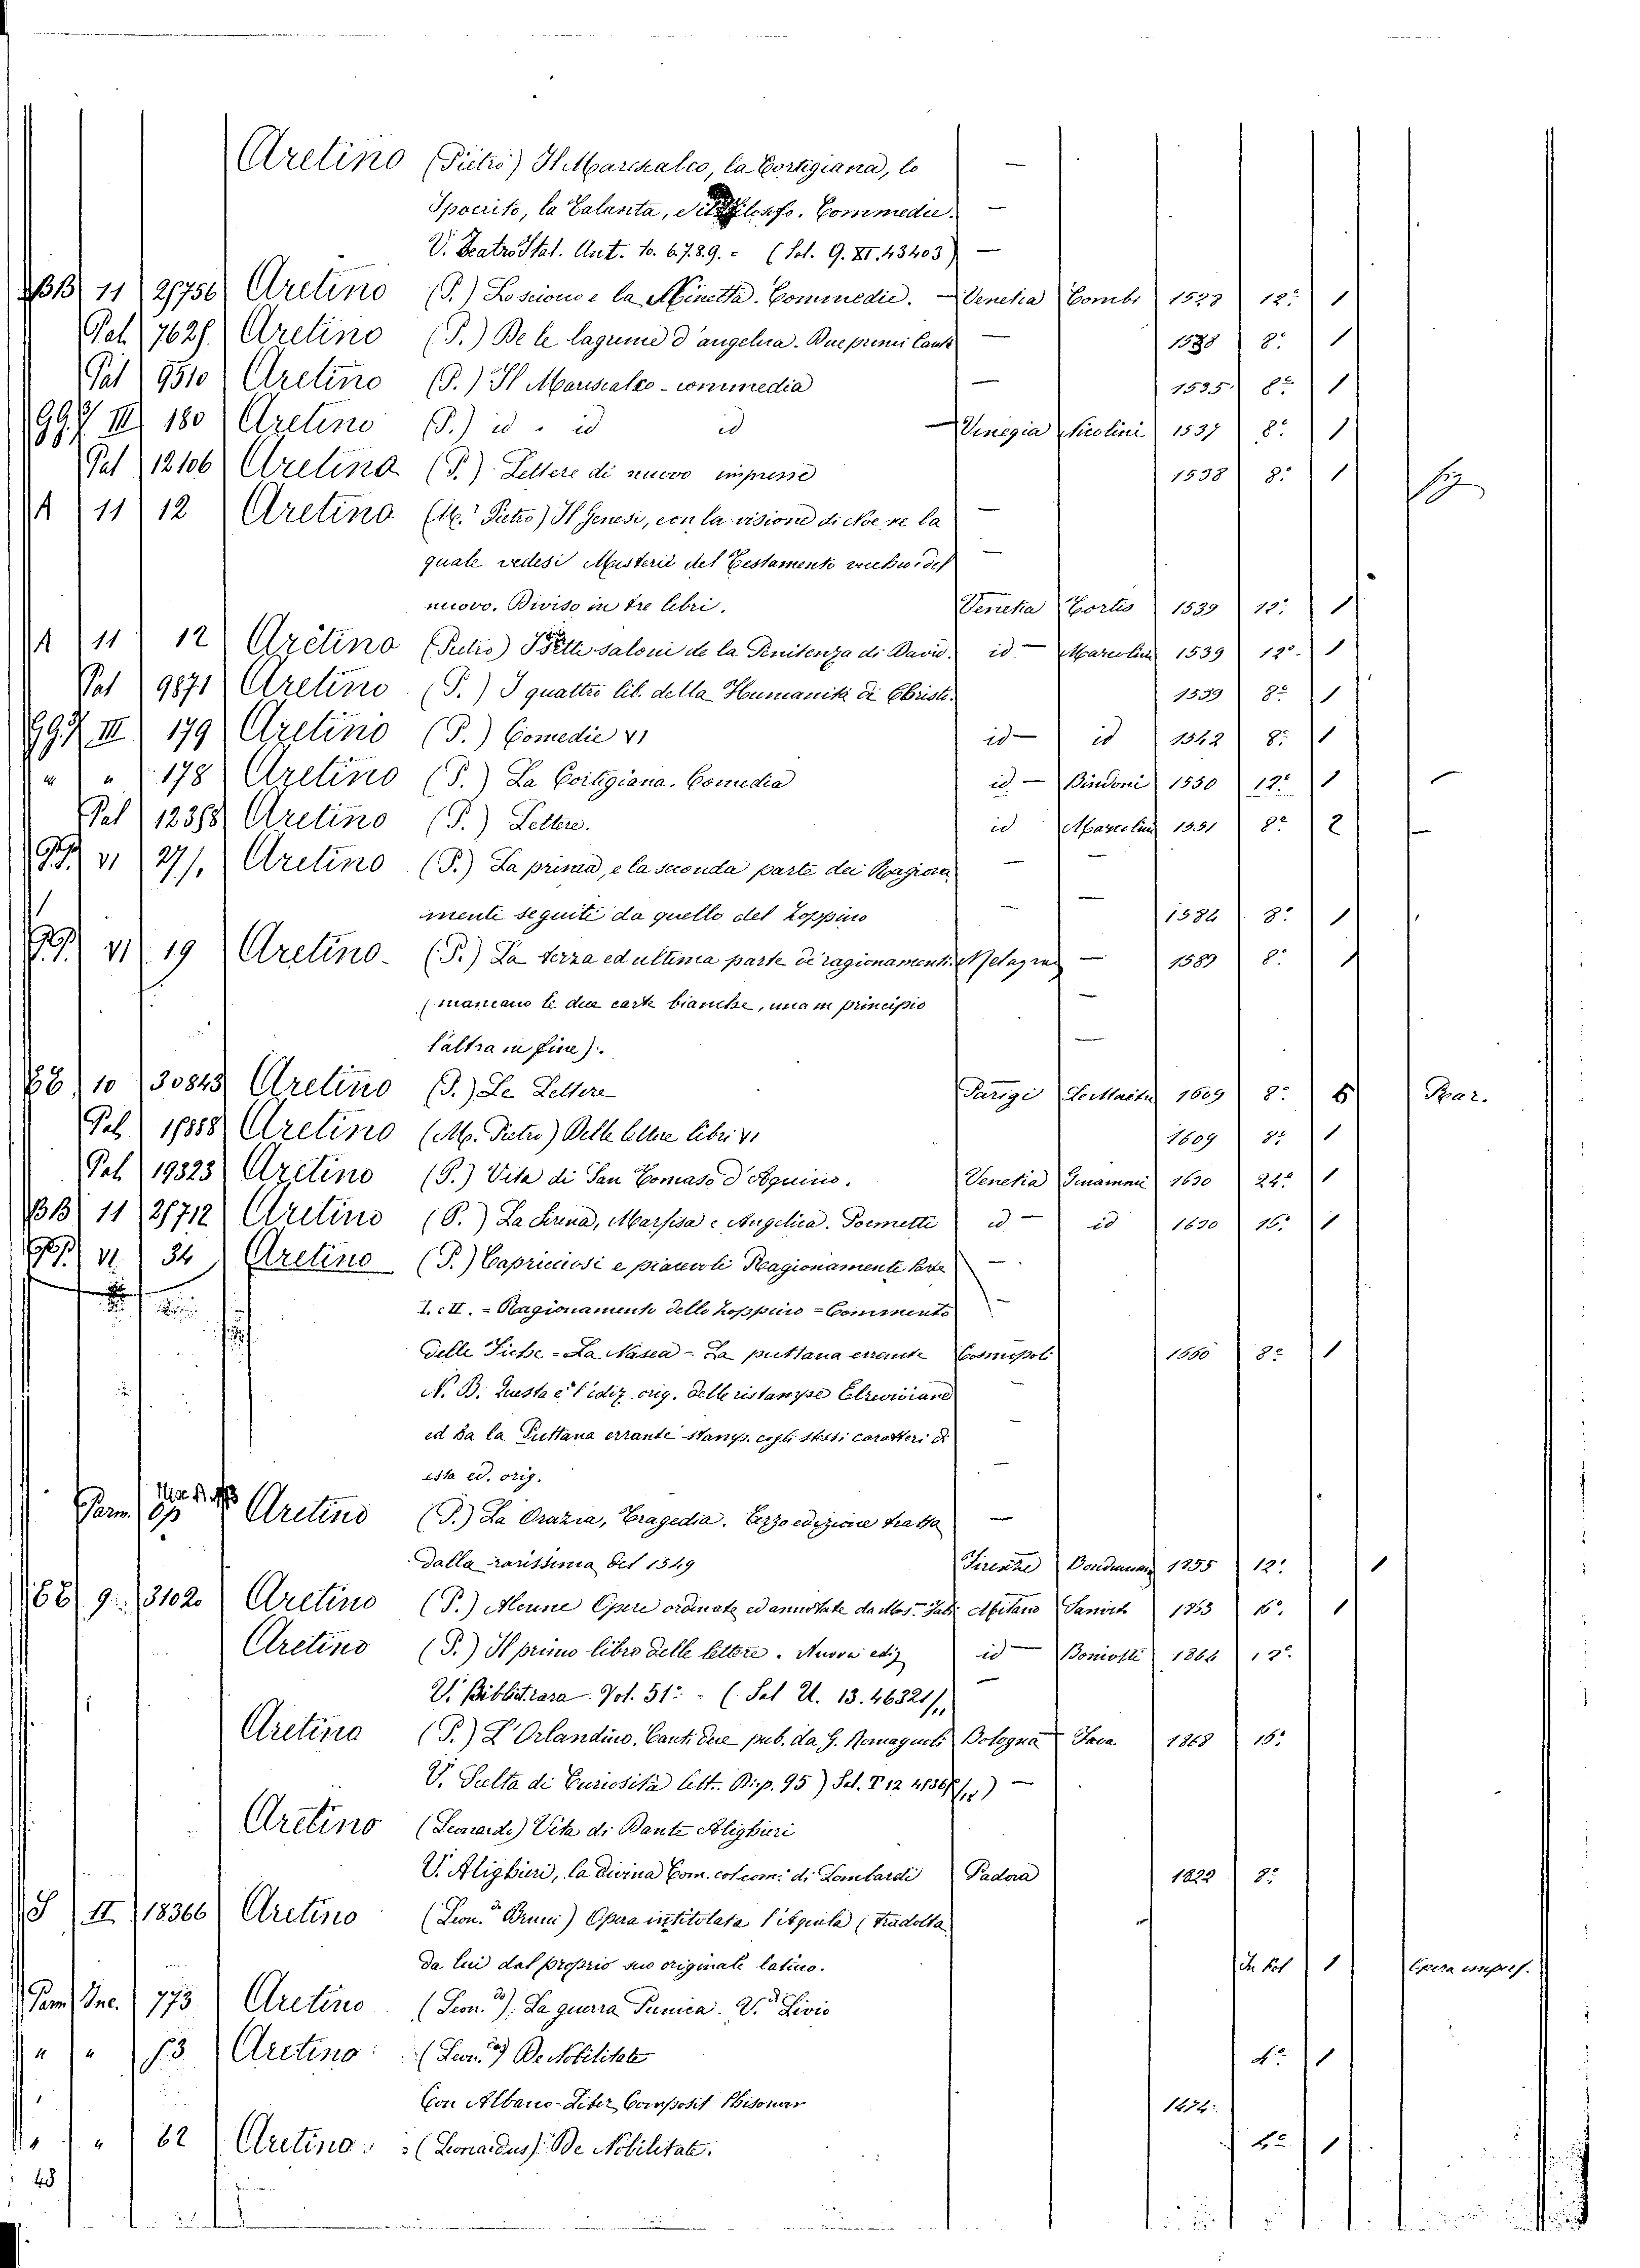 Aretino (Pietro) Il Marescalco, la Cortigiana, lo —
Ipocrito, la Talanta, Filosofo. Commedie. —
V. Teatro Ital. Ant. to. 6.7.8.9. = (Sal. Q. XI. 43403) —
BB 11 Aretino (P.) Lo scioco e la Ninetta. Commedie. — Venetia Combi 12° 1
Pal Aretino (P.) De le lagrime d'angelica. Due primi Canti — 8° 1
Pal 9510 Aretino (P.) Il Marescalco - commedia — 1535 8° 1
III 180 Aretino (P.) id - id id — Vinegia Nicolini 1537 8° 1
Pal 12106 Aretino (P.) Lettere di nuovo impresse 1538 8° 1
A 11 12 Aretino (M. Pietro) Il Genesi, con la visione di Noe ne la —
quale vedesi Misterii del Testamento vecchio e del —
nuovo. Diviso in tre libri. Venetia 1539 12° 1
A 11 12 Aretino (Pietro) Sette salmi de la Penitenza di David. id — Marcolini 1539 12° 1
Pal 9871 Aretino (P.) I quattro lib. della Humanità di Christo. 1539 8° 1
III 179 Aretino (P.) Comedie VI id — id 1542 8° 1
" " 178 Aretino (P.) La Cortigiana. Comedia id — Bindoni 1550 12° 1 —
Pal Aretino (P.) Lettere. id Marcolini 1551 8° 2 —
VI Aretino (P.) La prima, e la seconda parte dei Ragiona —
menti seguiti da quello del Zoppino — 1584 8° 1
VI 19 Aretino (P.) La terza ed ultima parte de ragionamenti. — 1589 8° 1
(mancano le due carte bianche, una in principio —
l'altra in fine). —
10 30843 Aretino (P.) Le Lettere Parigi 1609 8° 6 Rar.
Pal Aretino (M. Pietro) Delle lettere libri VI 1609 8° 1
Pal 19323 Aretino (P.) Vita di San Tomaso d'Aquino. Venetia Ginammi 1630 24° 1
BB 11 Aretino (P.) La Sirena, Marfisa e Angelica. Poemetti id — id 1630 16° 1
VI 34 Aretino (P.) Capricciosi e piacevoli Ragionamenti Parte —
I. e II. = Ragionamento dello Zoppino = Commento —
delle Fiche - La Nasea - La puttana errante Cosmopoli 1660 8° 1
N. B. Questa è l'ediz. orig. delle ristampe Elzeviriane —
ed ha la Puttana errante stamp. cogli stessi caratteri di —
esta ed. orig. —
Aretino (P.) La Orazia, Tragedia. Terzo edizione tratta —
dalla rarissima del 1549 Firenze 1855 12° 1
9 31020 Aretino (P.) Alcune Opere ordinate ed annotate da Mass. Fabi Milano Sanvito 1863 16° 1
Aretino (P.) Il primo libro delle lettere. Nuova ediz id — 1864 12°
V. Bibliot. rara Vol. 51° - (Sal U. 13. 46321/
Aretino (P.) L'Orlandino. Canti due pub. da G. Romagnoli Bologna 1868 16°
V. Scelta di Curiosità lett. Disp. 95) Sal. T 12 —
Aretino (Leonardo) Vita di Dante Alighieri
V. Alighieri, la divina Com. col com. di Lombardi Padova 1822 8°
S II 18366 Aretino (Leon.do Bruni) Opera intitolata l'Aquila (tradotta
da lui dal proprio suo originale latino. in fol 1 Opera imperf.
Inc. 773 Aretino (Leon.do). La guerra Punica. V.di Livio
" " 53 Aretino (Leon.do) De Nobilitate 4° 1
Con Albano - Liber 1474.
" " 62 Aretino (Leonardus). De Nobilitate. 4° 1
48